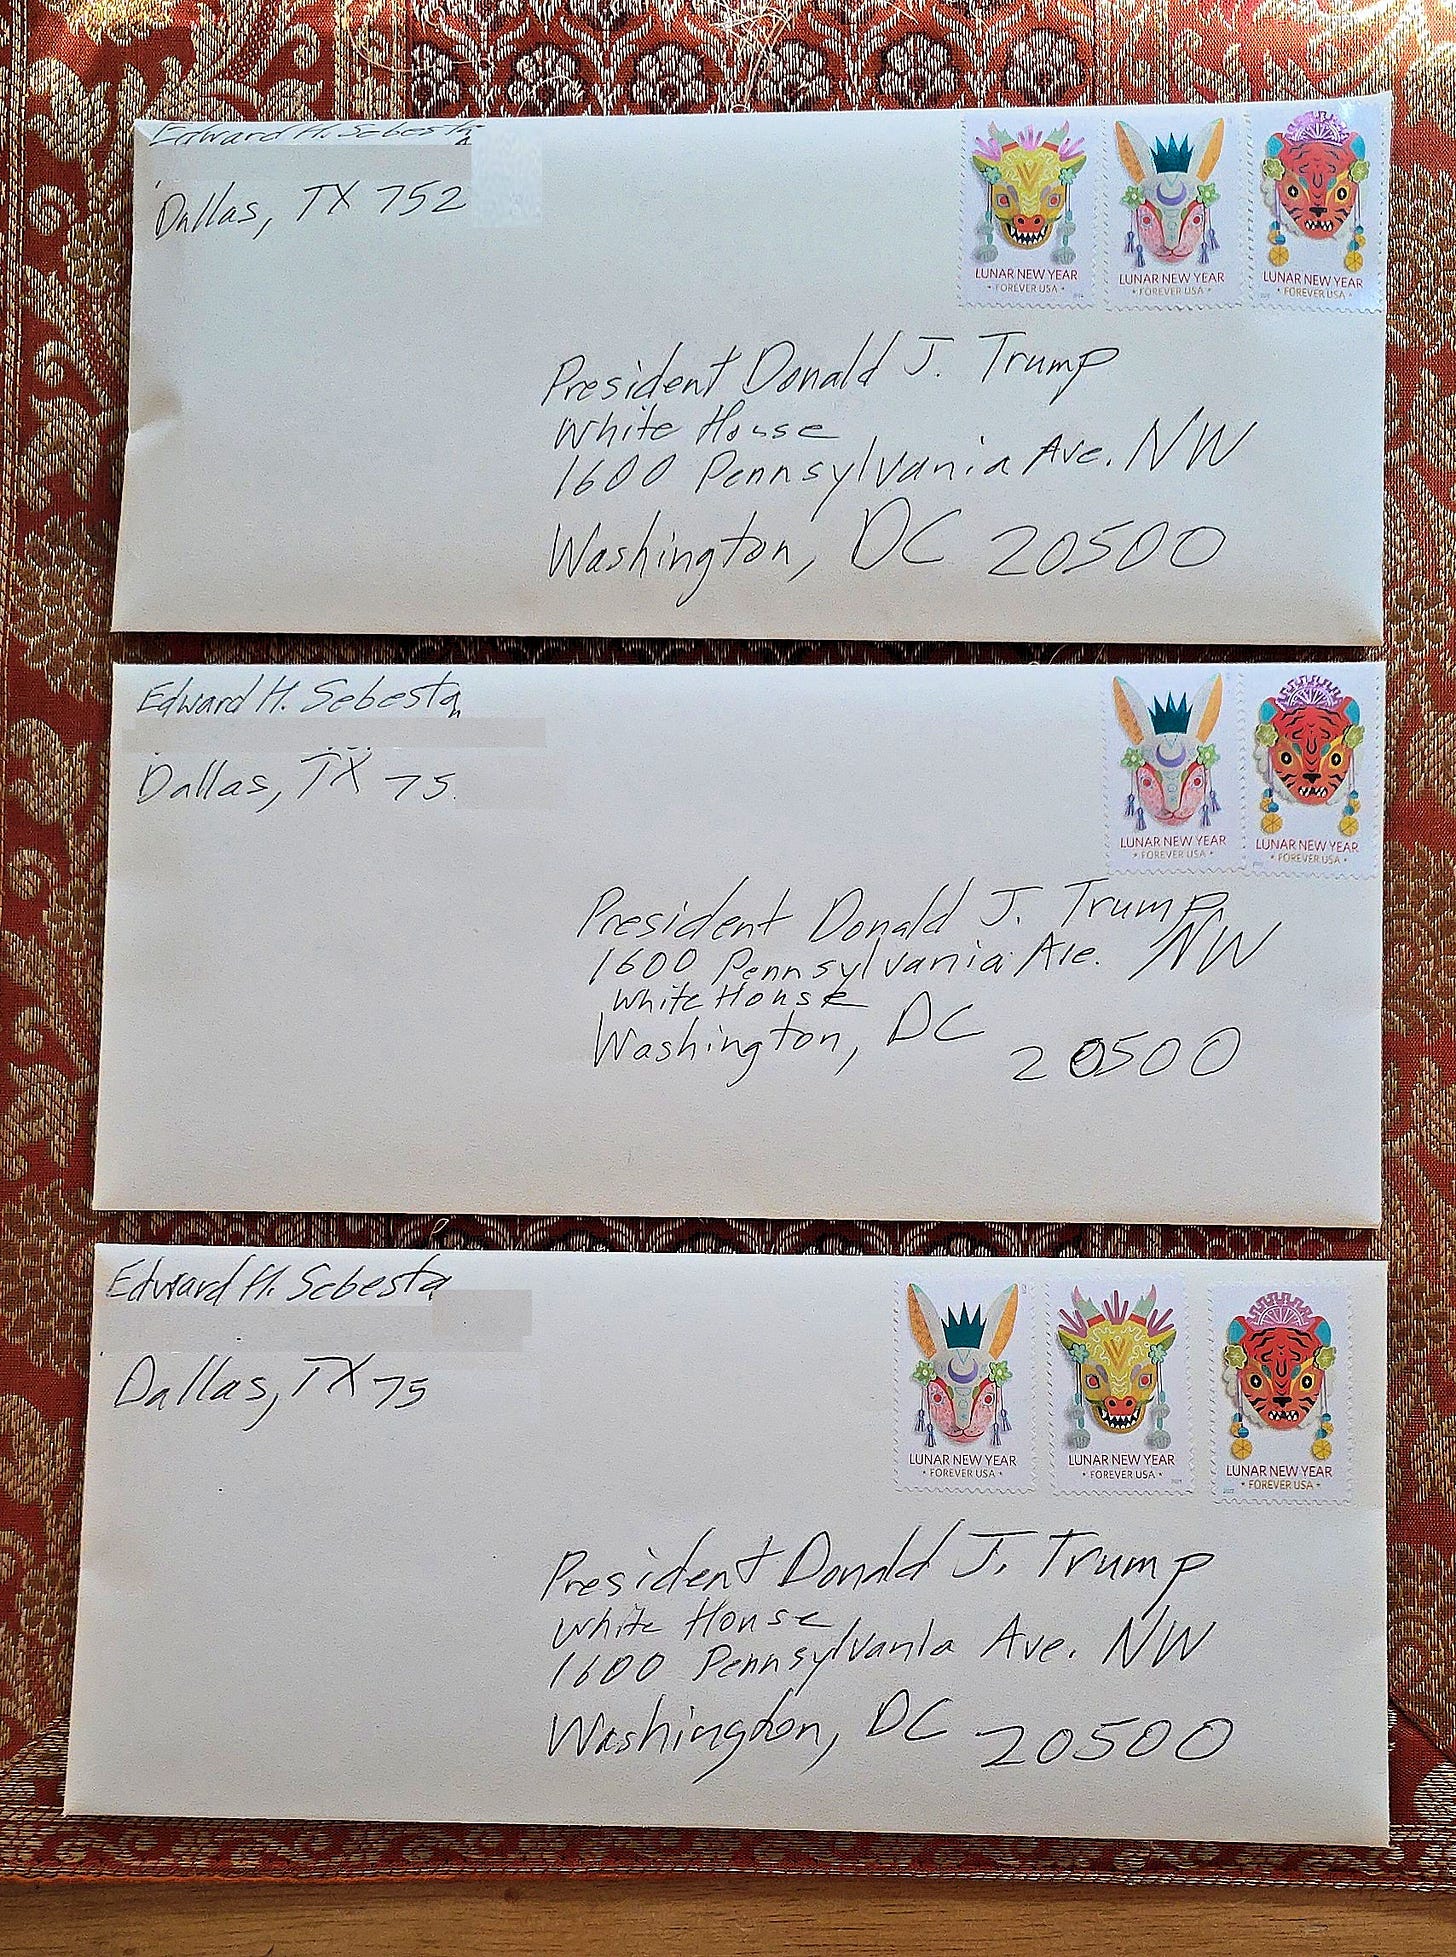 Edward H. Sebesta
Dallas, TX 752
LUNAR NEW YEAR
FOREVER USA
LUNAR NEW YEAR
FOREVER USA
LUNAR NEW YEAR
FOREVER USA
President Donald J. Trump
White House
1600 Pennsylvania Ave. NW
Washington, DC 20500
Edward H. Sebesta
Dallas, TX 75
LUNAR NEW YEAR
FOREVER USA
LUNAR NEW YEAR
FOREVER USA
President Donald J. Trump
1600 Pennsylvania Ave. NW
White House
Washington, DC
20500
Edward H. Sebesta
Dallas, TX 75
LUNAR NEW YEAR
• FOREVER USA •
LUNAR NEW YEAR
• FOREVER USA •
LUNAR NEW YEAR
• FOREVER USA •
President Donald J. Trump
White House
1600 Pennsylvania Ave. NW
Washington, DC 20500